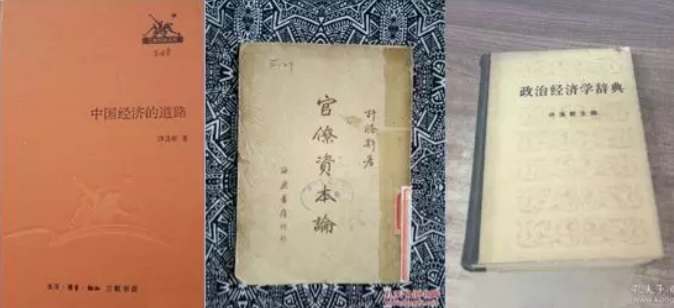 中国经济的道路
许涤新 著
生活·讀書·新知 三联书店
許滌新著
官僚資本論
政治经济学辞典
许涤新主编
孔夫子